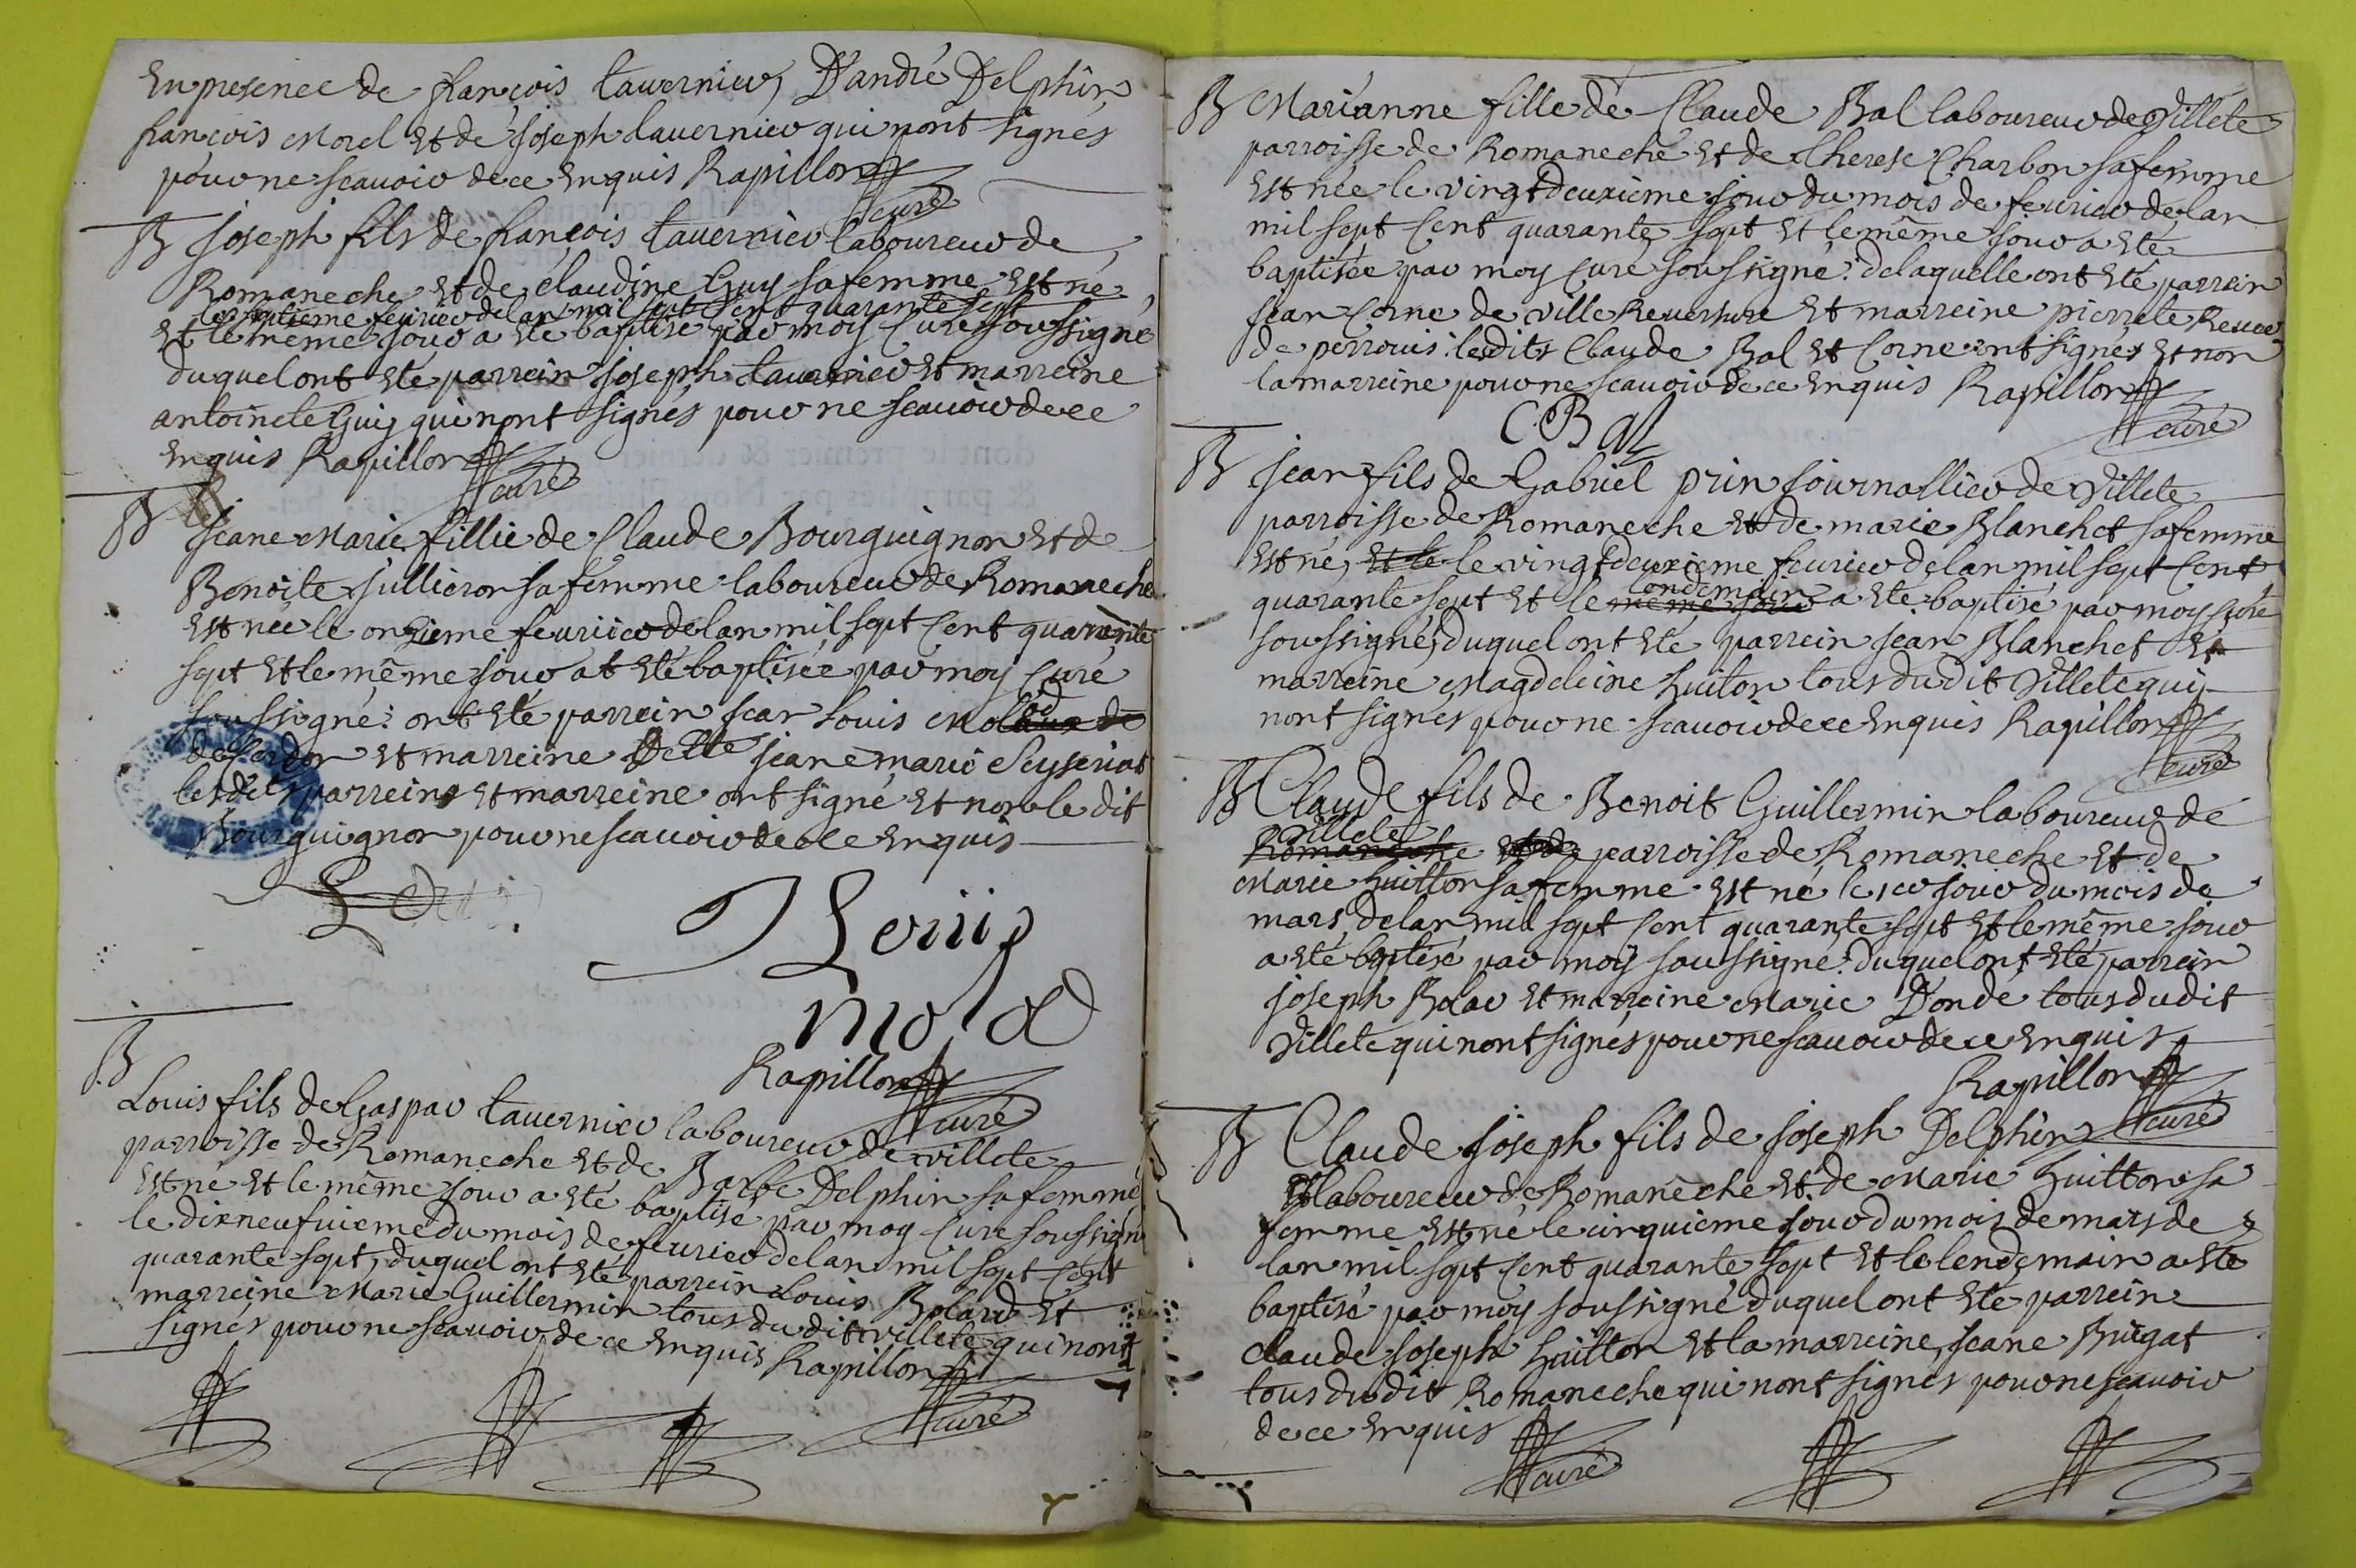 En presence de françois tavernier, D'andré Delphin
françois Morel Et de Joseph tavernier qui nont signés
pour ne scavoir de ce Enquis Rapillon
curé
B Joseph fils de françois tavernier laboureur de
Romaneche Et de claudine Guy sa femme Est né
le septieme fevrier de lan mil sept Cent quarante sept
Et le même jour a Eté baptisé par moy Curé soussigné
duquel ont Eté parrein Joseph tavernier Et marreine
antoinete Guy qui nont signés pour ne scavoir de ce
Enquis Rapillon
curé
B Jeane Marie fillie de Claude Bourguignon Et de
Benoite Jullieron sa femme laboureur de Romaneche
Est née le onzieme fevrier de lan mil sept Cent quarante
sept Et le même jour at Eté baptisée par moy Curé
soussigné: ont Eté parrein jean Louis Molad
de et marreine Delle jeane marie Seyseriat
lesdits parreins Et marreine ont signé Et non le dit
Bourguignon pour ne scavoir de ce Enquis
Louis
molad
Rapillon
curé
B
Louis fils de Gaspar tavernier laboureur de villete
parroisse de Romaneche Et de Barbe Delphin sa femme
Est né Et le même jour a Eté baptisé par moy Curé soussigné
le dixneufvieme du mois de fevrier de lan mil sept Cent
quarante sept, duquel ont Eté parrein Louis Bolard Et
marreine Marie Guillermin tous du dit villete qui nont
signés pour ne scavoir de ce Enquis Rapillon
curé
B Marianne fille de Claude Bal laboureur de Villete
parroisse de Romaneche Et de therese Charbon sa femme
Est née le vingtdeuxieme jour du mois de fevrier de lan
mil sept Cent quarante sept Et le même jour a Eté
baptisée par moy Curé soussigné: de laquelle ont Eté parrein
jean Corne de ville Reversure Et marreine pierrete
de perrouis: lesdits Claude Bal Et Corne ont signés Et non
la marreine pour ne scavoir de ce Enquis Rapillon
curé
C. Bal
B jean fils de Gabriel prin journallier de Villete
parroisse de Romaneche Et de marie Blanchet sa femme
Est né, Et le le vingtdeuxieme fevrier de lan mil sept Cent
londemain
quarante sept Et le même jour a Eté baptisé par moy Curé
soussigné, duquel ont Eté parrein jean Blanchet Et
marreine Magdeleine huiton tous du dit Villete qui
nont signés pour ne scavoir de ce Enquis Rapillon
curé
B Claude fils de Benoit Guillermin laboureur de
Villete
Romaneche Et de parroisse de Romaneche Et de
Marie huitton sa femme Est né le 1er jour du mois de
mars de lan mil sept Cent quarante sept Et le même jour
a Eté baptisé par moy soussigné: duquel ont Eté parrein
joseph Et marreine Marie Dondé tous du dit
Villete qui nont signés pour ne scavoir de ce Enquis
Rapillon
curé
B Claude joseph fils de joseph Delphin
laboureur de Romaneche Et de Marie huitton sa
femme Est né le cinquieme jour du mois de mars de
lan mil sept Cent quarante sept Et le lendemain a Eté
baptisé par moy soussigné duquel ont Eté parrein
claude joseph huitton Et la marreine, jeane Bugat
tous du dit Romaneche qui nont signés pour ne scavoir
de ce Enquis
curé